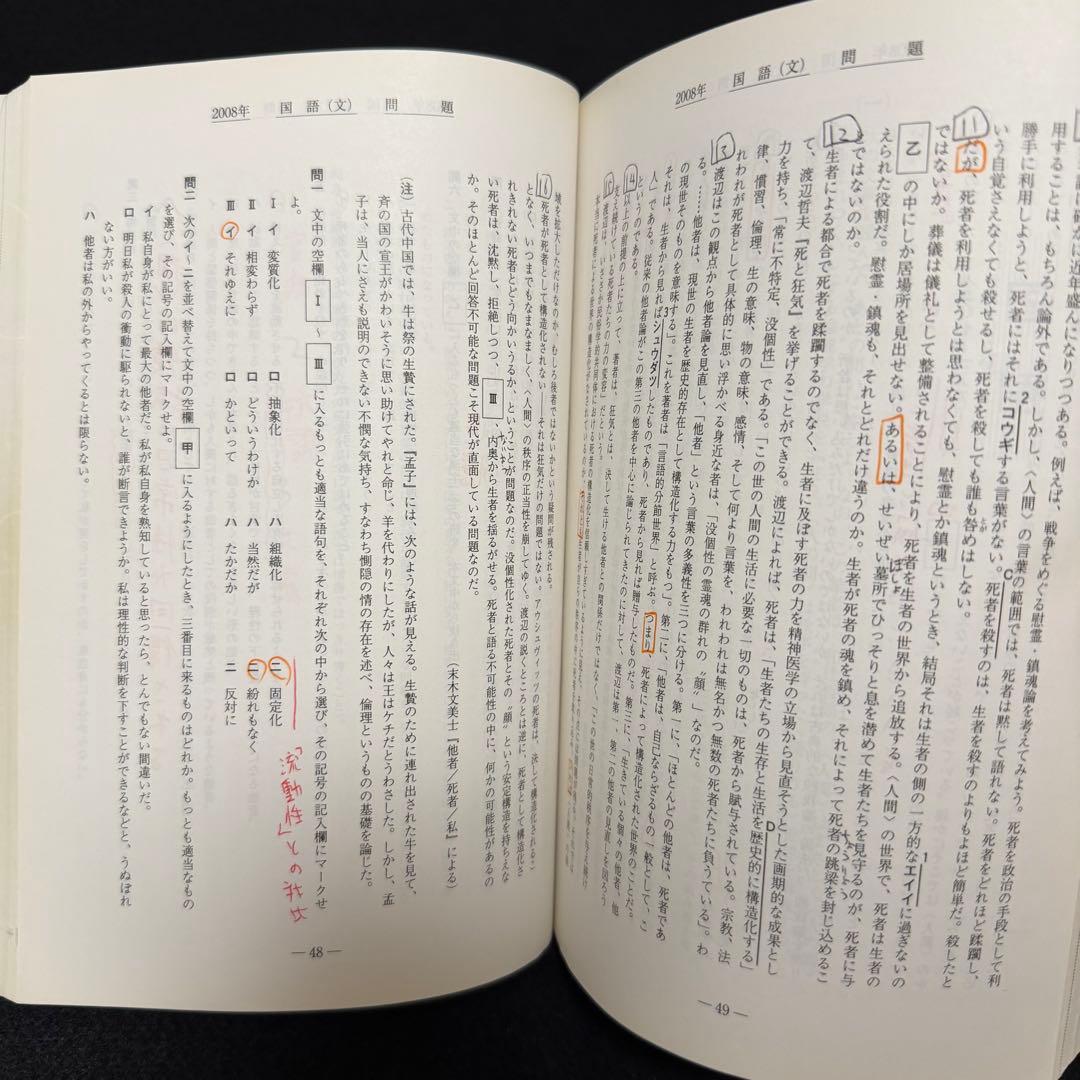 2008年 国語(文) 問題
用することは、もちろん論外である。しかし、〈人間〉の言葉の範囲では、死者は黙して語れない。死者をどれほど蹂躙し、
勝手に利用しようと、死者にはそれにコウギする言葉がない。死者を殺すのは、生者を殺すのよりもよほど簡単だ。殺したと
2
C
いう自覚さえなくても殺せるし、死者を殺しても誰も咎めはしない。
とが
11
だが、死者を利用しようとは思わなくても、慰霊とか鎮魂というとき、結局それは生者の側の一方的なエイイに過ぎないの
1
ではないか。葬儀は儀礼として整備されることにより、死者を生者の世界から追放する。〈人間〉の世界で、死者は生者の
乙の中にしか居場所を見出せない。あるいは、せいぜい墓所でひっそりと息を潜めて生者たちを見守るのが、死者に与
ぼしょ
えられた役割だ。慰霊・鎮魂も、それとどれだけ違うのか。生者が死者の魂を鎮め、それによって死者の跳梁を封じ込めるこ
ちょうりょう
とではないのか。
12
生者による都合で死者を蹂躙するのでなく、生者に及ぼす死者の力を精神医学の立場から見直そうとした画期的な成果とし
て、渡辺哲夫『死と狂気』を挙げることができる。渡辺によれば、死者は、「生者たちの生存と生活を歴史的に構造化する」
D
力を持ち、「常に不特定、没個性」である。「この世の人間の生活に必要な一切のものは、死者から賦与されている。宗教、法
律、慣習、倫理、生の意味、物の意味、感情、そして何より言葉を、われわれは無名かつ無数の死者たちに負うている」。わ
れわれが死者として具体的に思い浮かべる身近な者は、「没個性の霊魂の群れの〝顔〟」なのだ。
13
渡辺はこの観点から他者論を見直し、「他者」という言葉の多義性を三つに分ける。第一に、「ほとんどの他者は、死者であ
る。……他者は、現世の生者を歴史的存在として構造化する力をもつ」。第二に、「他者は、自己ならざるもの一般として、こ
の現世そのものを意味する」。これを著者は「言語的分節世界」と呼ぶ。つまり、死者によって構造化された世界のことだ。
それは、生者から見ればシュウダツしたものであり、死者から見れば贈与したものだ。第三に、「生きている個々の他者、他
3
人」である。従来の他者論がこの第三の他者を中心に論じられてきたのに対して、渡辺は第一、第二の他者の見直しを図ろう
というのである。
14
以上の前提の上に立って、著者は、狂気とは、決して生ける他者との関係だけではなく、「この世の日常的秩序を与え続け
支え続けている死者たちの力の変容」だという。
15
— 49 —
2008年 国語(文) 問題
域を拡大しただけなのか、むしろ後者ではないかという疑問が残される。
16
死者が死者として構造化されない——それは狂気だけの問題ではない。アウシュヴィッツの死者は、決して構造化される
となく、いつまでもなまなましく、〈人間〉の秩序の正当性を崩してゆく。渡辺の説くところとは逆に、死者として構造化さ
れきれない死者とどう向かいうるか、ということが問題なのだ。没個性化された死者とその〝顔〟という安定構造を持ちえな
い死者は、沈黙し、拒絶しつつ、Ⅲ、内奥から生者を揺るがせる。死者と語る不可能性の中に、何かの可能性があるの
か。そのほとんど回答不可能な問題こそ現代が直面している問題なのだ。
(末木文美士『他者/死者/私』による)
(注) 古代中国では、牛は祭の生贄にされた。『孟子』には、次のような話が見える。生贄のために連れ出された牛を見て、
斉の国の宣王がかわいそうに思い助けてやれと命じ、羊を代わりにしたが、人々は王はケチだとうわさした。しかし、孟
子は、当人にさえも説明のできない不憫な気持ち、すなわち惻隠の情の存在を述べ、倫理というものの基礎を論じた。
問一 文中の空欄Ⅰ~Ⅲに入るもっとも適当な語句を、それぞれ次の中から選び、その記号の記入欄にマークせ
よ。
Ⅰ イ 変質化 ロ 抽象化 ハ 組織化 ニ 固定化
Ⅱ イ 相変わらず ロ どういうわけか ハ 当然だが ニ 紛れもなく
Ⅲ イ それゆえに ロ かといって ハ たかだか ニ 反対に
「流動性」との対比
問二 次のイ~ニを並べ替えて文中の空欄甲に入るようにしたとき、三番目に来るものはどれか。もっとも適当なもの
を選び、その記号の記入欄にマークせよ。
イ 私自身が私にとって最大の他者だ。私が私自身を熟知していると思ったら、とんでもない間違いだ。
ロ 明日私が殺人の衝動に駆られないと、誰が断言できようか。私は理性的な判断を下すことができるなどと、うぬぼれ
ない方がいい。
ハ 他者は私の外からやってくるとは限らない。
— 48 —